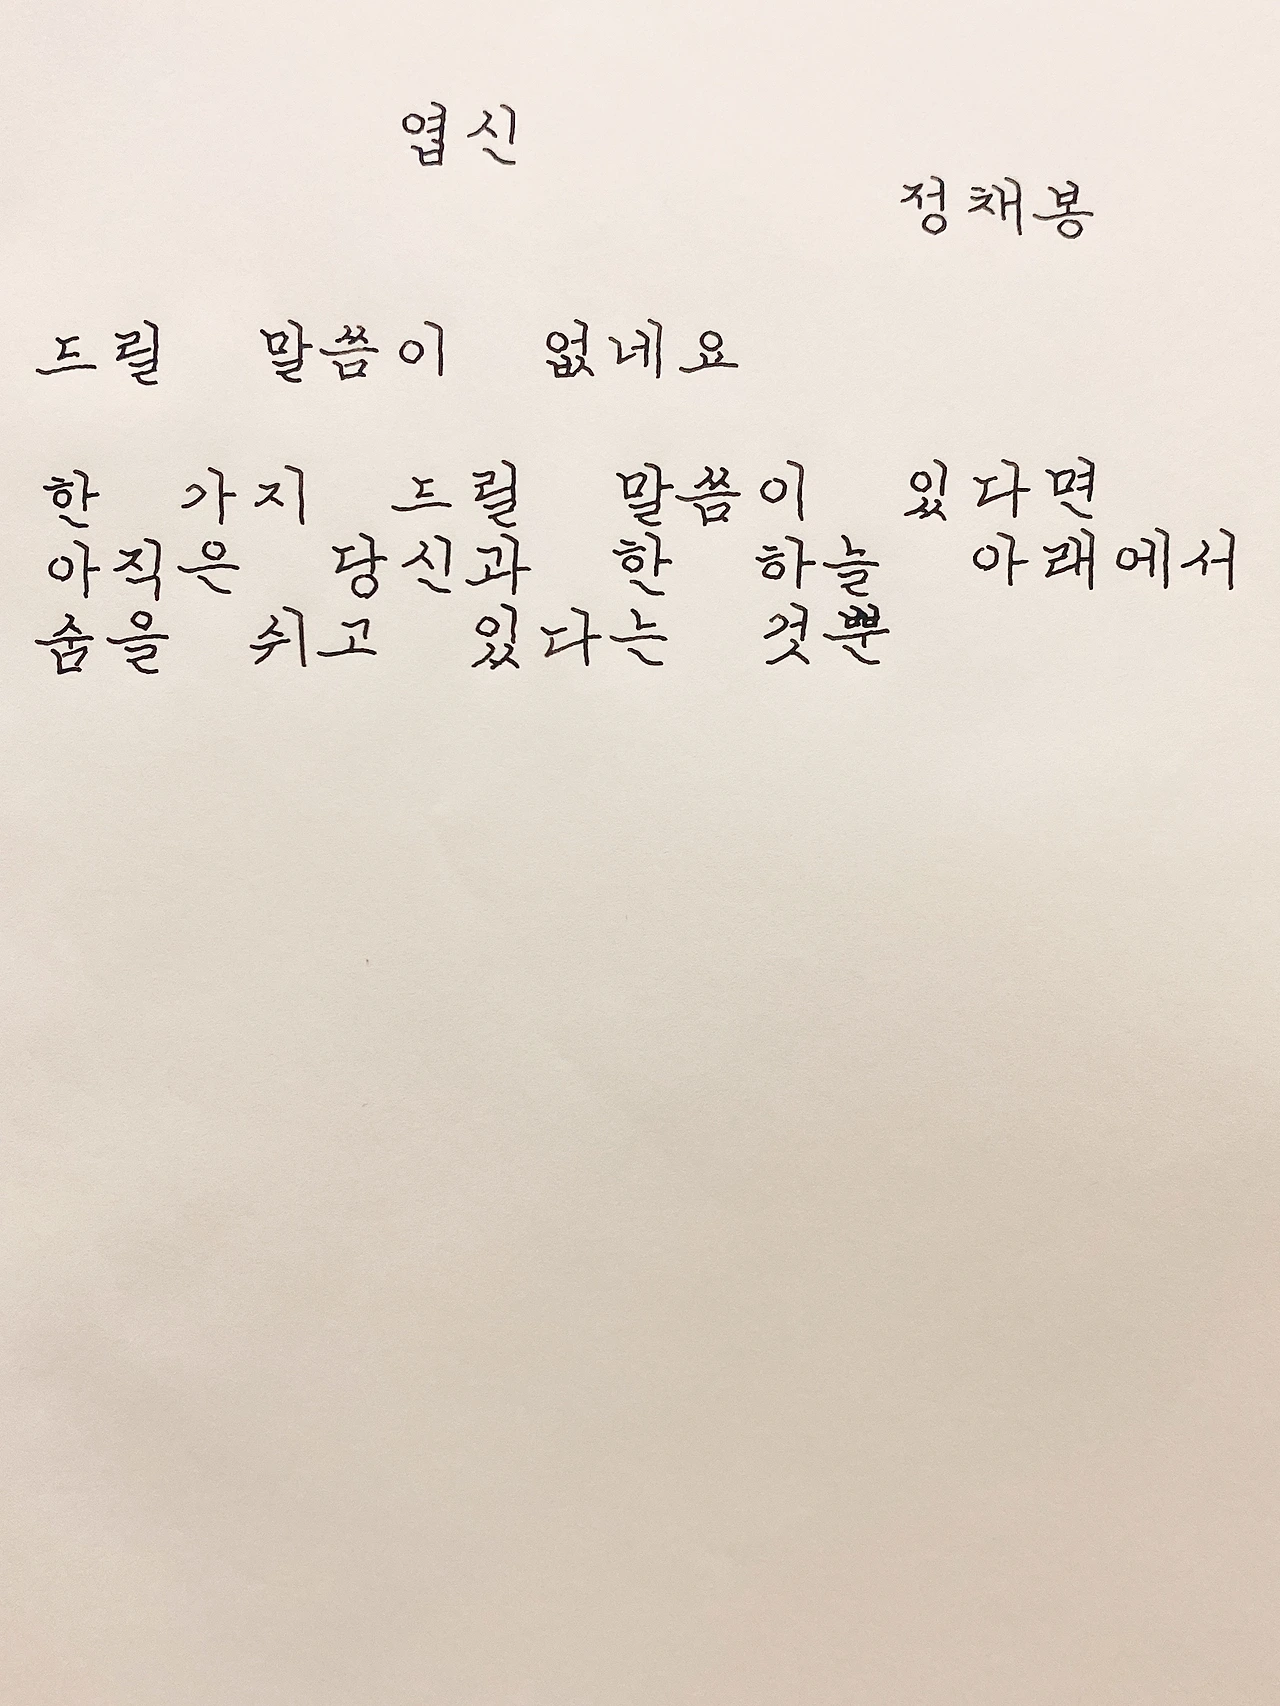 엽신
정채봉
드릴 말씀이 없네요
한 가지 드릴 말씀이 있다면
아직은 당신과 한 하늘 아래에서
숨을 쉬고 있다는 것뿐